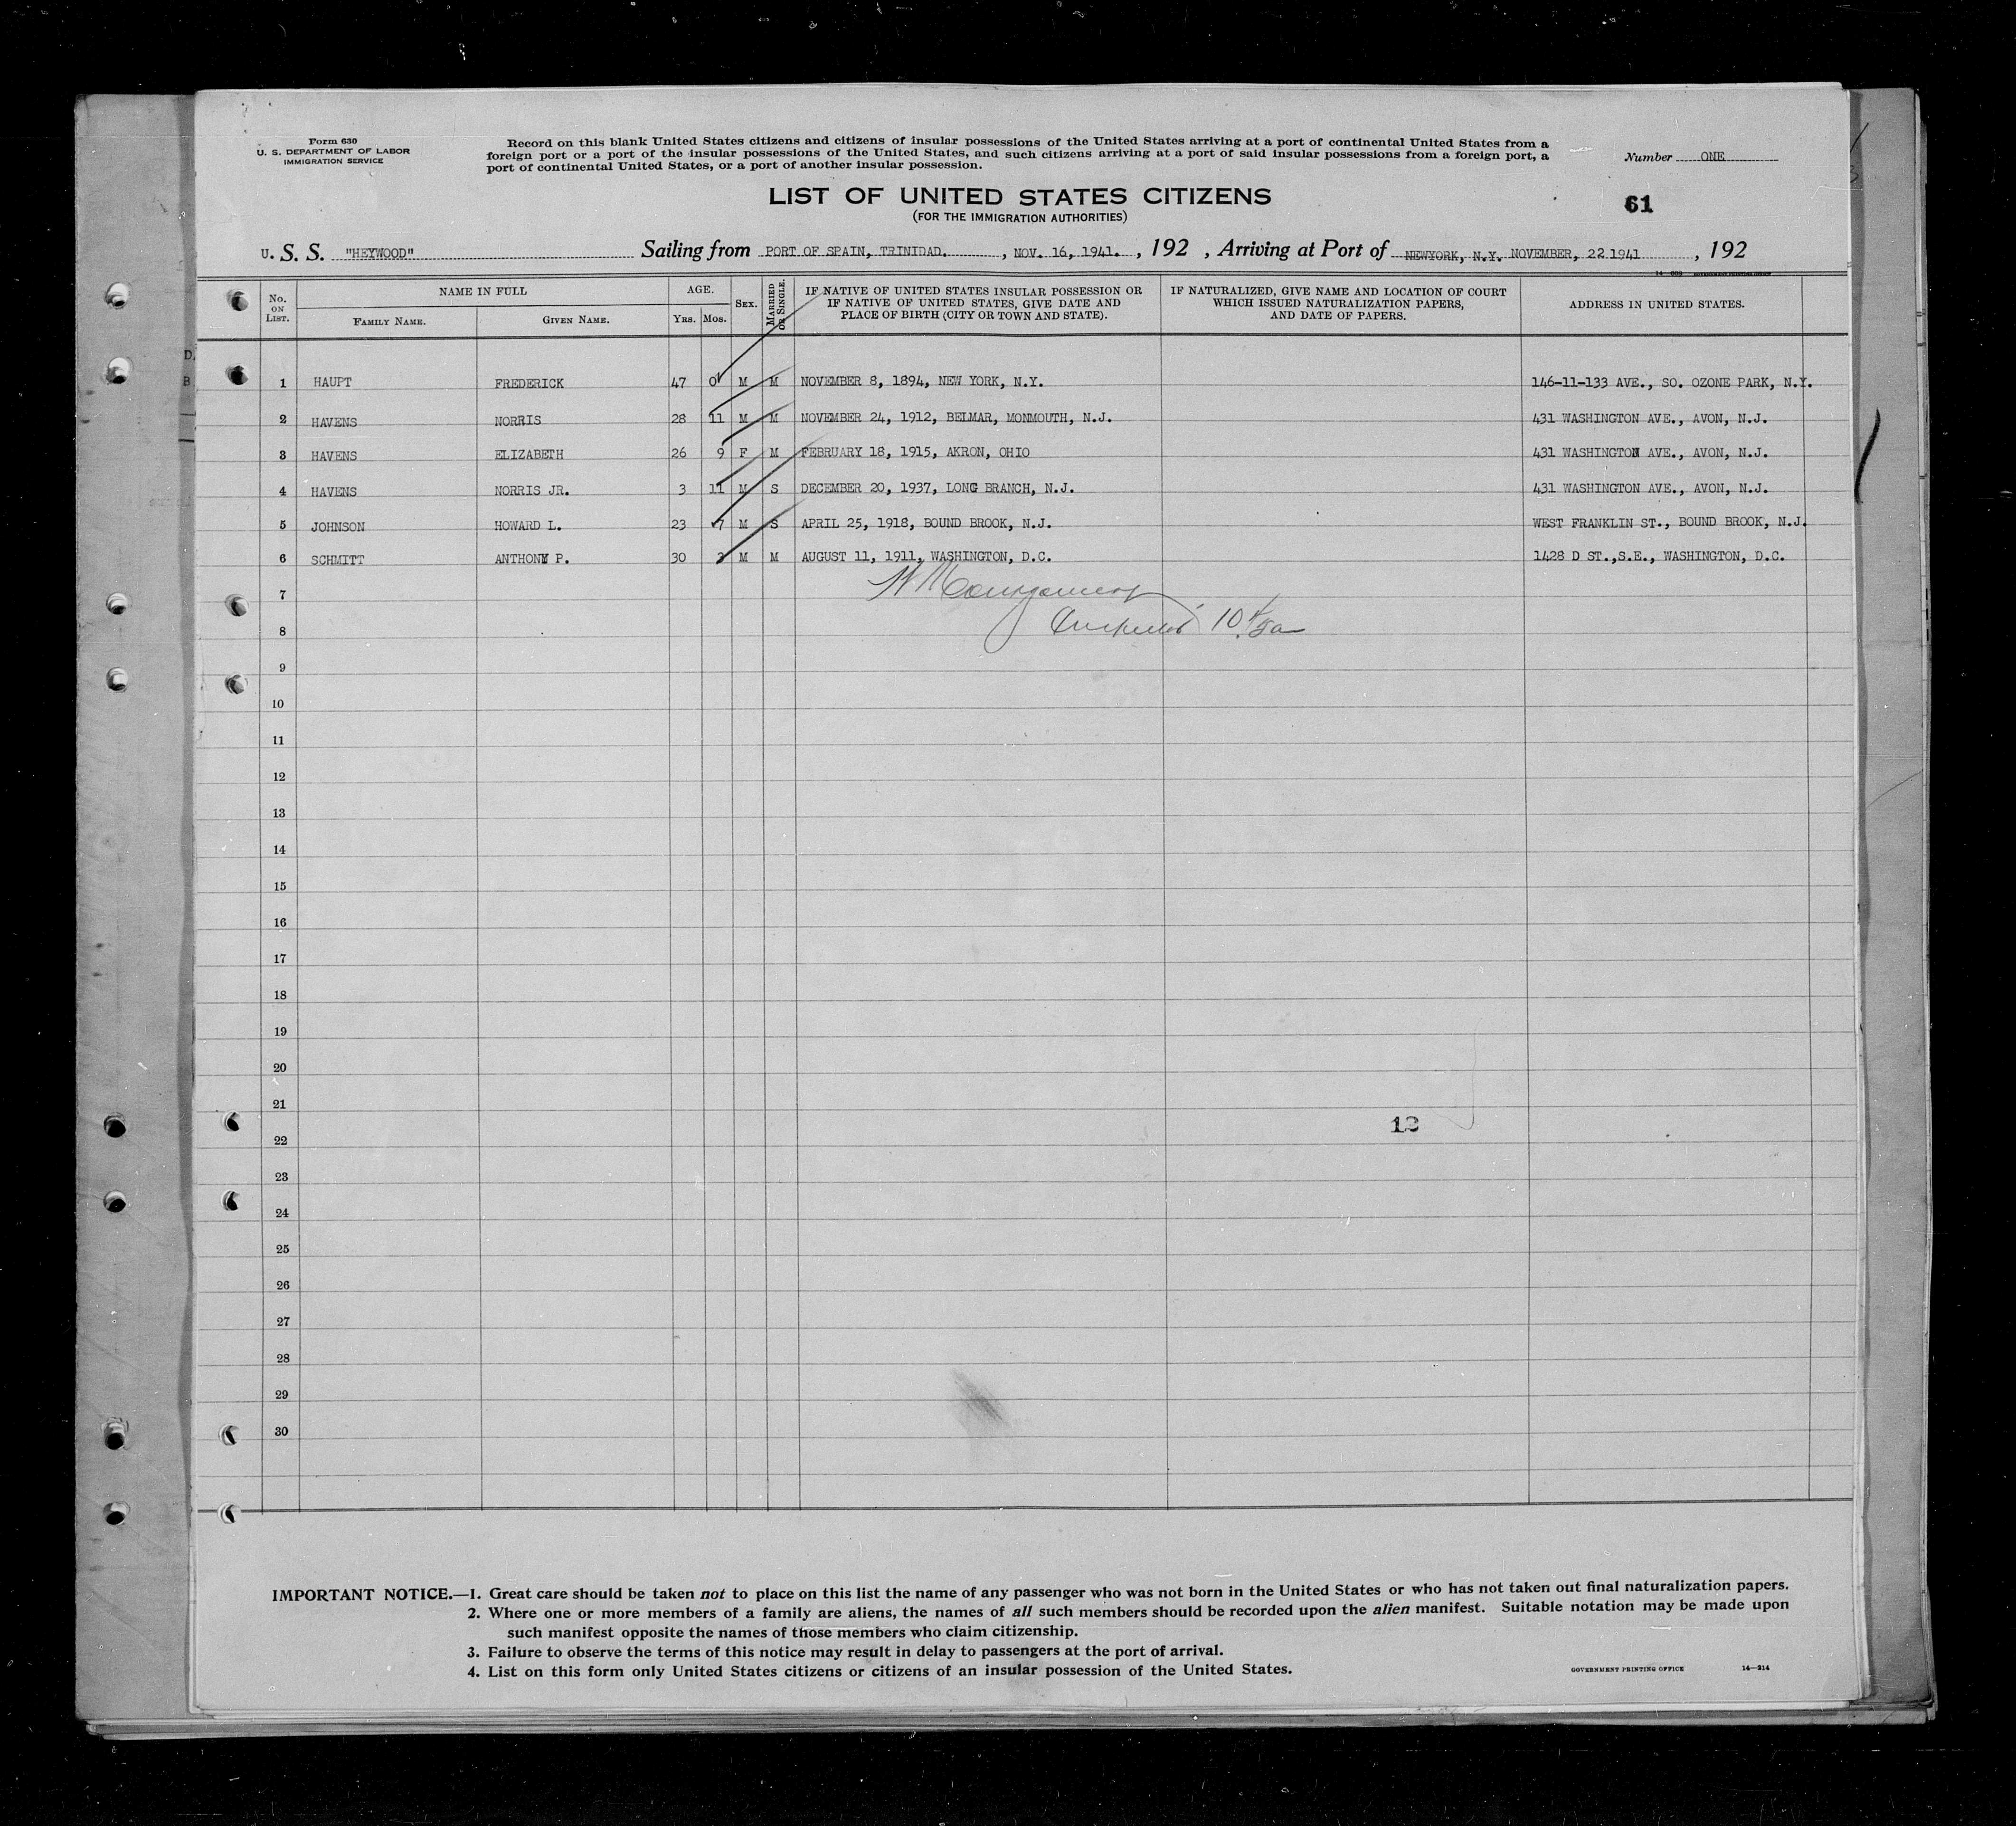 Form 630
U. S. DEPARTMENT OF LABOR
IMMIGRATION SERVICE
Record on this blank United States citizens and citizens of insular possessions of the United States arriving at a port of continental United States from a
foreign port or a port of the insular possessions of the United States, and such citizens arriving at a port of said insular possessions from a foreign port, a
port of continental United States, or a port of another insular possession.
Number ONE
LIST OF UNITED STATES CITIZENS
(FOR THE IMMIGRATION AUTHORITIES)
61
U. S. S. "HEYWOOD" Sailing from PORT OF SPAIN, TRINIDAD. , NOV. 16, 1941. , 192 , Arriving at Port of NEWYORK, N.Y. NOVEMBER, 22 1941 , 192
No. ON LIST. NAME IN FULL FAMILY NAME. GIVEN NAME. AGE. YRS. MOS. SEX. MARRIED OR SINGLE. IF NATIVE OF UNITED STATES INSULAR POSSESSION OR IF NATIVE OF UNITED STATES, GIVE DATE AND PLACE OF BIRTH (CITY OR TOWN AND STATE). IF NATURALIZED, GIVE NAME AND LOCATION OF COURT WHICH ISSUED NATURALIZATION PAPERS, AND DATE OF PAPERS. ADDRESS IN UNITED STATES.
D.
B
1 HAUPT FREDERICK 47 0 M M NOVEMBER 8, 1894, NEW YORK, N.Y. 146-11-133 AVE., SO. OZONE PARK, N.Y.
2 HAVENS NORRIS 28 11 M M NOVEMBER 24, 1912, BELMAR, MONMOUTH, N.J. 431 WASHINGTON AVE., AVON, N.J.
3 HAVENS ELIZABETH 26 9 F M FEBRUARY 18, 1915, AKRON, OHIO 431 WASHINGTON AVE., AVON, N.J.
4 HAVENS NORRIS JR. 3 11 M S DECEMBER 20, 1937, LONG BRANCH, N.J. 431 WASHINGTON AVE., AVON, N.J.
5 JOHNSON HOWARD L. 23 7 M S APRIL 25, 1918, BOUND BROOK, N.J. WEST FRANKLIN ST., BOUND BROOK, N.J.
6 SCHMITT ANTHONY P. 30 3 M M AUGUST 11, 1911, WASHINGTON, D.C. 1428 D ST.,S.E., WASHINGTON, D.C.
7 Montgomery
8
9
10
11
12
13
14
15
16
17
18
19
20
21
12
22
23
24
25
26
27
28
29
30
IMPORTANT NOTICE.—1. Great care should be taken not to place on this list the name of any passenger who was not born in the United States or who has not taken out final naturalization papers.
2. Where one or more members of a family are aliens, the names of all such members should be recorded upon the alien manifest. Suitable notation may be made upon
such manifest opposite the names of those members who claim citizenship.
3. Failure to observe the terms of this notice may result in delay to passengers at the port of arrival.
4. List on this form only United States citizens or citizens of an insular possession of the United States.
GOVERNMENT PRINTING OFFICE 14—214